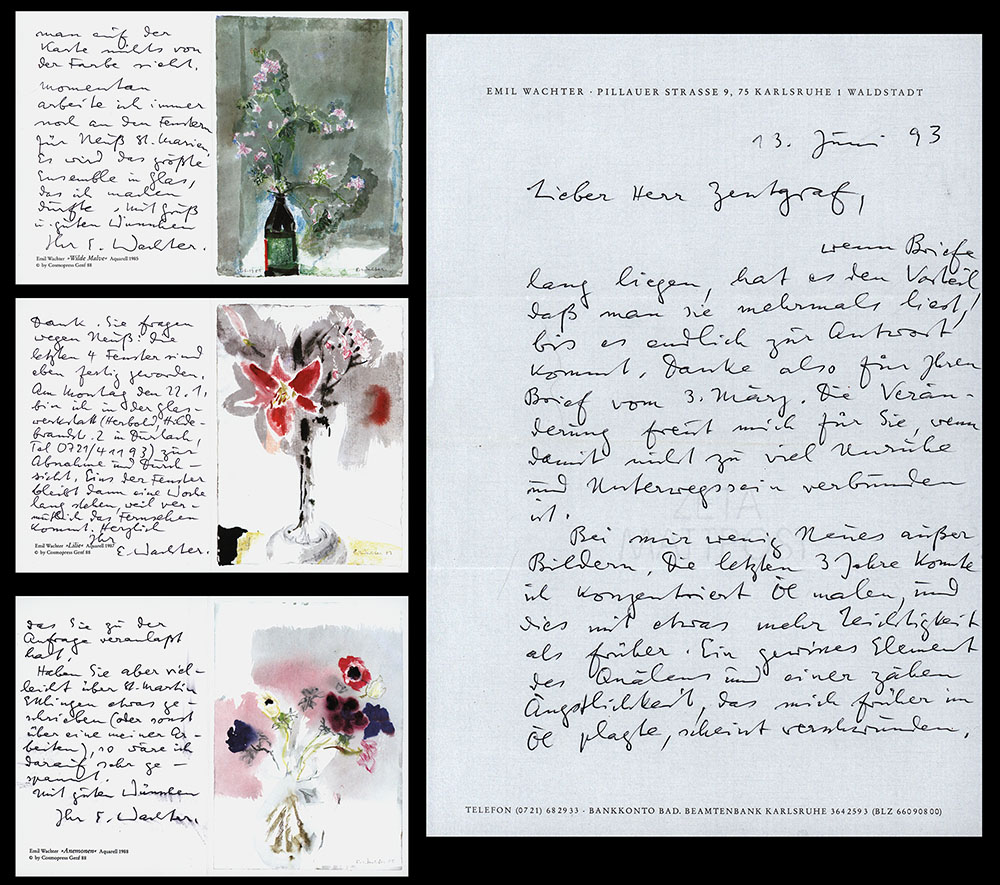 man auf der
Karte nichts von
der Farbe sieht.
Momentan
arbeite ich immer
noch an den Fenstern
für Neuß St. Marien.
Es wird das größte
Ensemble in Glas,
das ich machen
durfte. Mit Gruß
u. guten Wünschen
Ihr E. Wachter.
Emil Wachter »Wilde Malve« Aquarell 1985
© by Cosmopress Genf 88
Dank. Sie fragen
wegen Neuß: die
letzten 4 Fenster sind
eben fertig geworden.
Am Montag den 22.1.
bin ich in der Glas-
werkstatt (Herbold, Hilde-
brandstr. 2 in Durlach,
Tel 0721/41193) zur
Abnahme und Durch-
sicht. Eins der Fenster
bleibt dann eine Woche
lang stehen, weil ver-
mutlich das Fernsehen
kommt. Herzlich
Ihr
E. Wachter.
Emil Wachter »Lilie« Aquarell 1987
© by Cosmopress Genf 88
das Sie zu der
Anfrage veranlaßt
hat.
Haben Sie aber viel-
leicht über St. Martin
Ettlingen etwas ge-
schrieben (oder sonst
über eine meiner Ar-
beiten), so wäre ich
darauf sehr ge-
spannt.
Mit guten Wünschen
Ihr E. Wachter.
Emil Wachter »Anemonen« Aquarell 1988
© by Cosmopress Genf 88
EMIL WACHTER · PILLAUER STRASSE 9, 75 KARLSRUHE 1 WALDSTADT
13. Juni 93
Lieber Herr Zentgraf,
wenn Briefe
lang liegen, hat es den Vorteil,
daß man sie mehrmals liest,
bis es endlich zur Antwort
kommt. Danke also für Ihren
Brief vom 3. März. Die Verän-
derung freut mich für Sie, wenn
damit nicht zu viel Unruhe
und Unterwegssein verbunden
ist.
Bei mir wenig Neues außer
Bildern. Die letzten 3 Jahre konnte
ich konzentriert Öl malen, und
dies mit etwas mehr Leichtigkeit
als früher. Ein gewisses Element
des Quälens und einer zähen
Ängstlichkeit, das mich früher im
Öl plagte, scheint verschwunden.
TELEFON (0721) 682933 - BANKKONTO BAD. BEAMTENBANK KARLSRUHE 3642593 (BLZ 66090800)